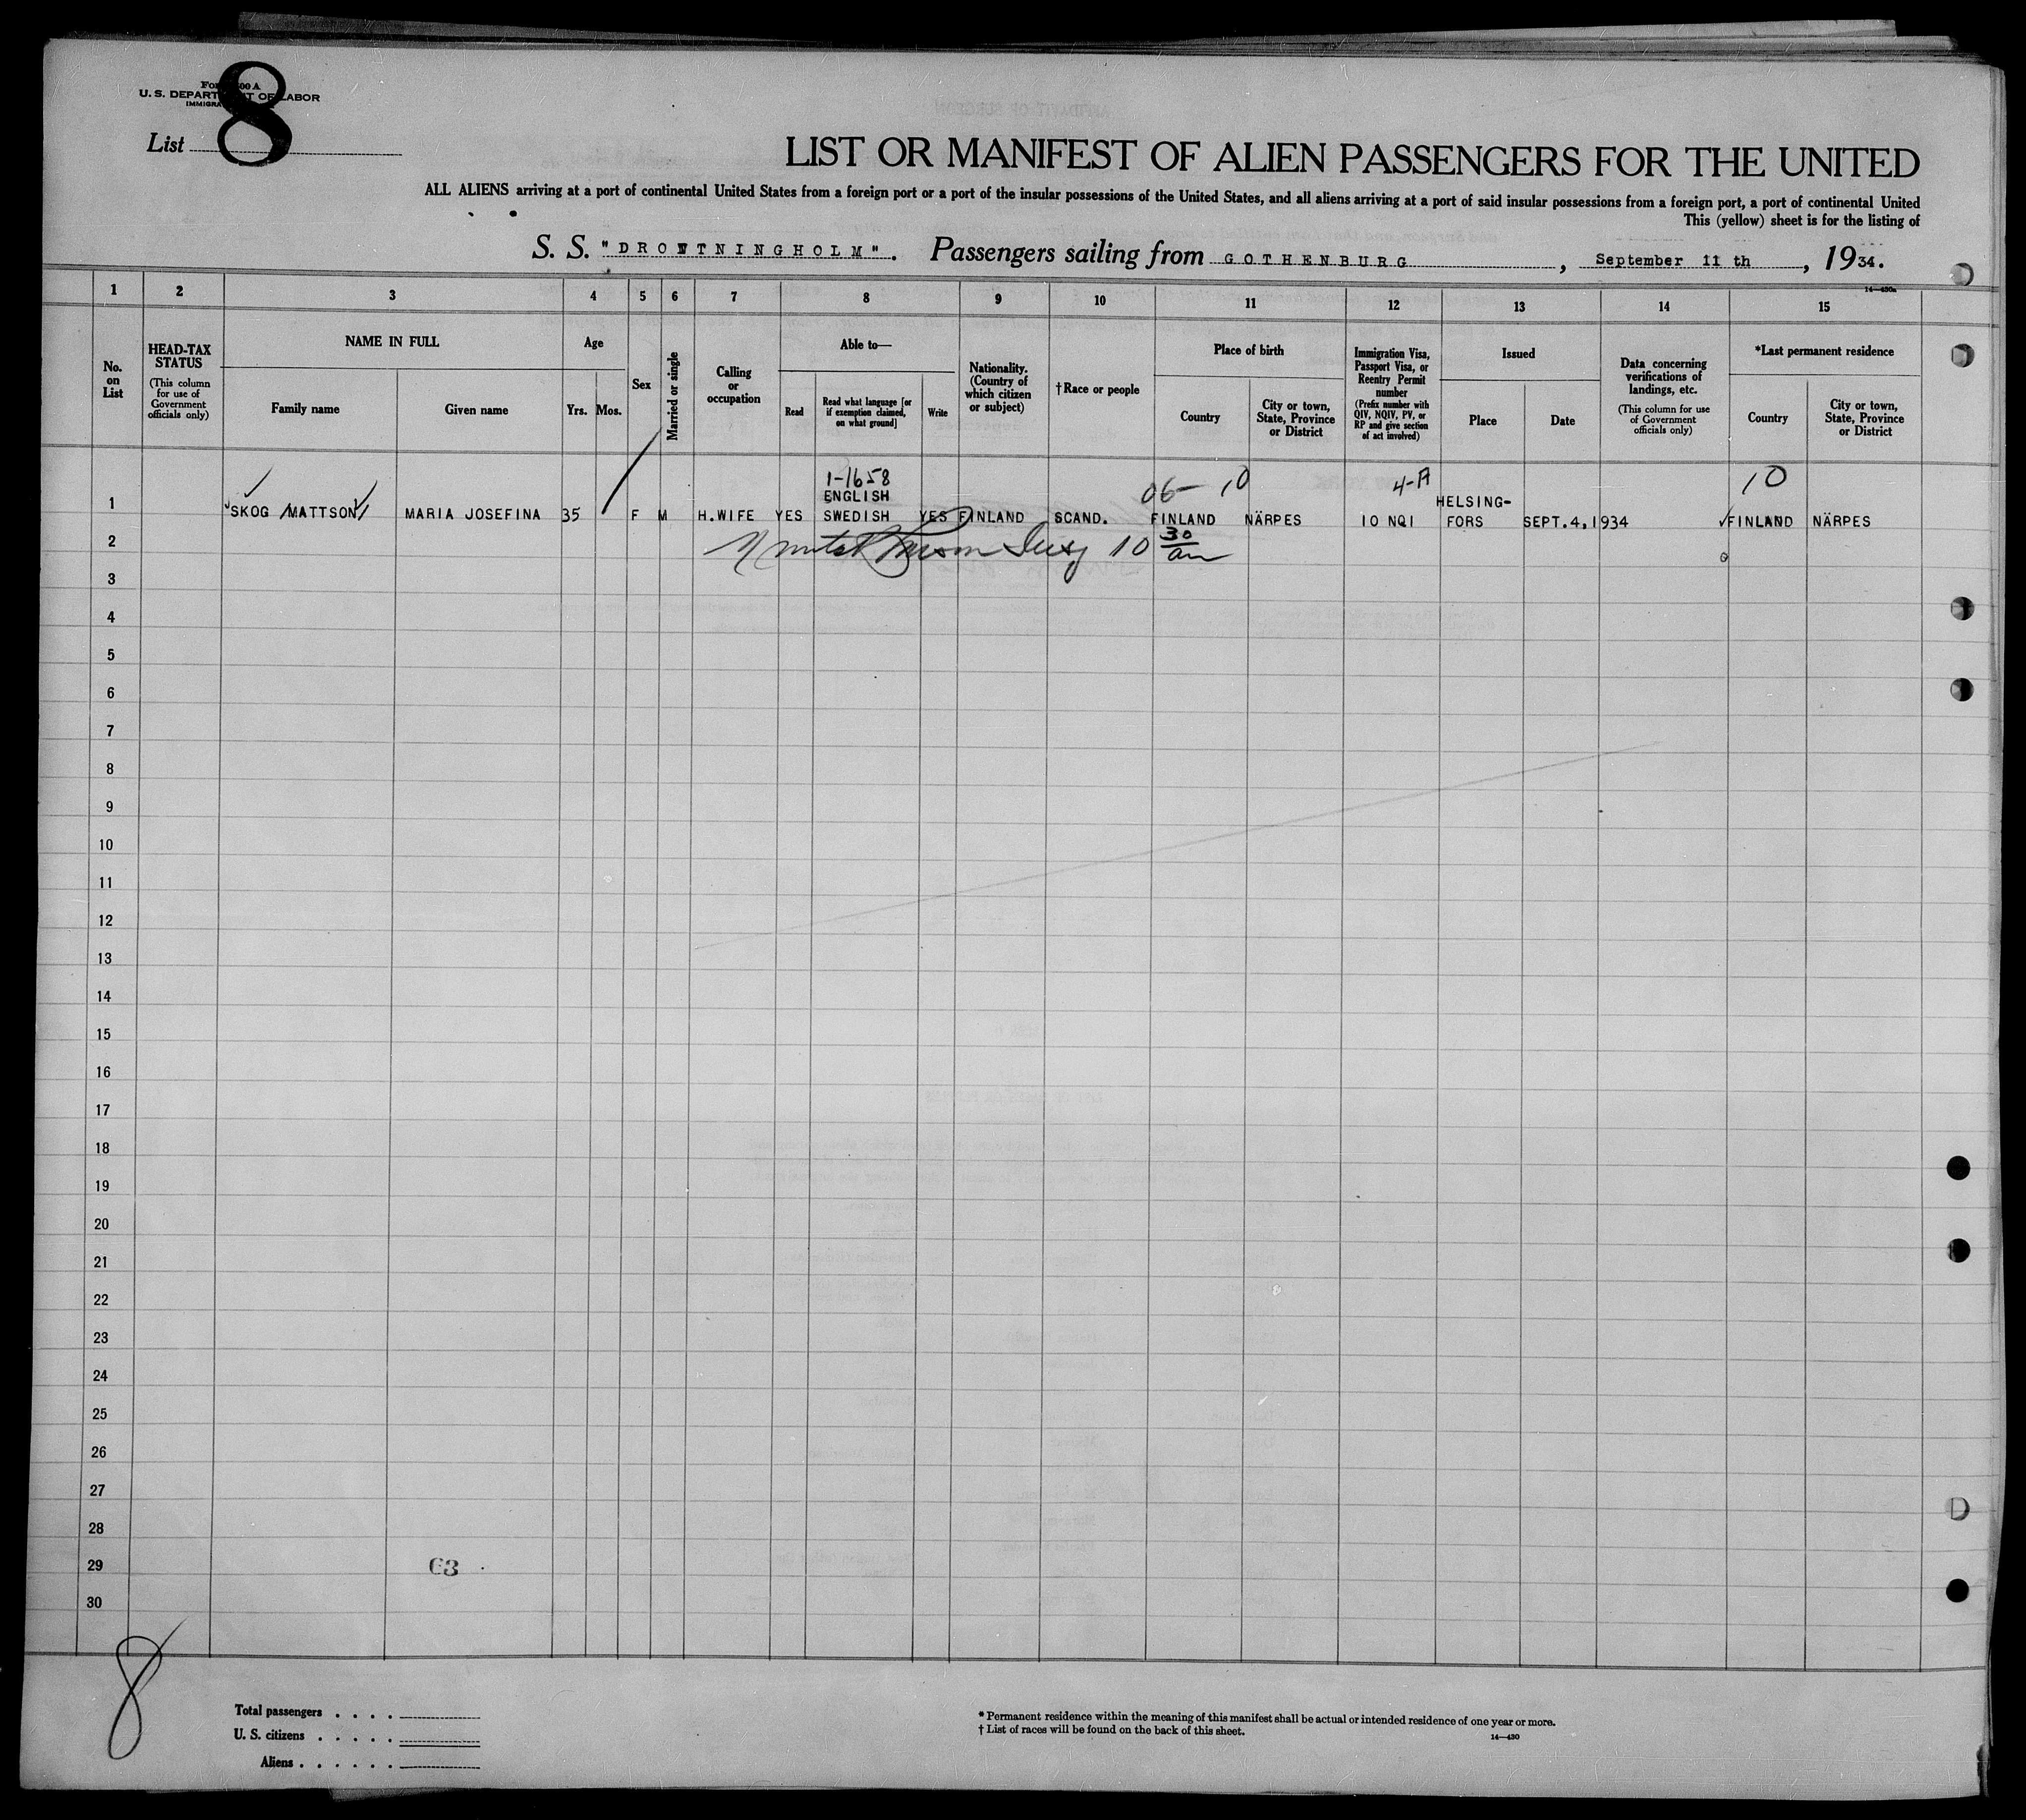 U. S. DEPARTMENT OF LABOR
List 8
LIST OR MANIFEST OF ALIEN PASSENGERS FOR THE UNITED
ALL ALIENS arriving at a port of continental United States from a foreign port or a port of the insular possessions of the United States, and all aliens arriving at a port of said insular possessions from a foreign port, a port of continental United
This (yellow) sheet is for the listing of
S. S. "DROTTNINGHOLM". Passengers sailing from GOTHENBURG, September 11 th, 1934.
14—430a
1 2 3 4 5 6 7 8 9 10 11 12 13 14 15
No. on List
HEAD-TAX STATUS
(This column for use of Government officials only)
NAME IN FULL
Family name
Given name
Age
Yrs. Mos.
Sex
Married or single
Calling or occupation
Able to—
Read
Read what language [or if exemption claimed, on what ground]
Write
Nationality. (Country of which citizen or subject)
†Race or people
Place of birth
Country
City or town, State, Province or District
Immigration Visa, Passport Visa, or Reentry Permit number
(Prefix number with QIV, NQIV, PV, or RP and give section of act involved)
Issued
Place
Date
Data concerning verifications of landings, etc.
(This column for use of Government officials only)
*Last permanent residence
Country
City or town, State, Province or District
1-1658 06- 10 4-A 10
ENGLISH HELSING-
1 SKOG MATTSON MARIA JOSEFINA 35 F M H.WIFE YES SWEDISH YES FINLAND SCAND. FINLAND NÄRPES 10 NQI FORS SEPT.4,1934 FINLAND NÄRPES
2 10 30 am
3
4
5
6
7
8
9
10
11
12
13
14
15
16
17
18
19
20
21
22
23
24
25
26
27
28
29 63
30
8
Total passengers . . . .
U. S. citizens . . . . .
Aliens . . . . . .
* Permanent residence within the meaning of this manifest shall be actual or intended residence of one year or more.
† List of races will be found on the back of this sheet.
14—430